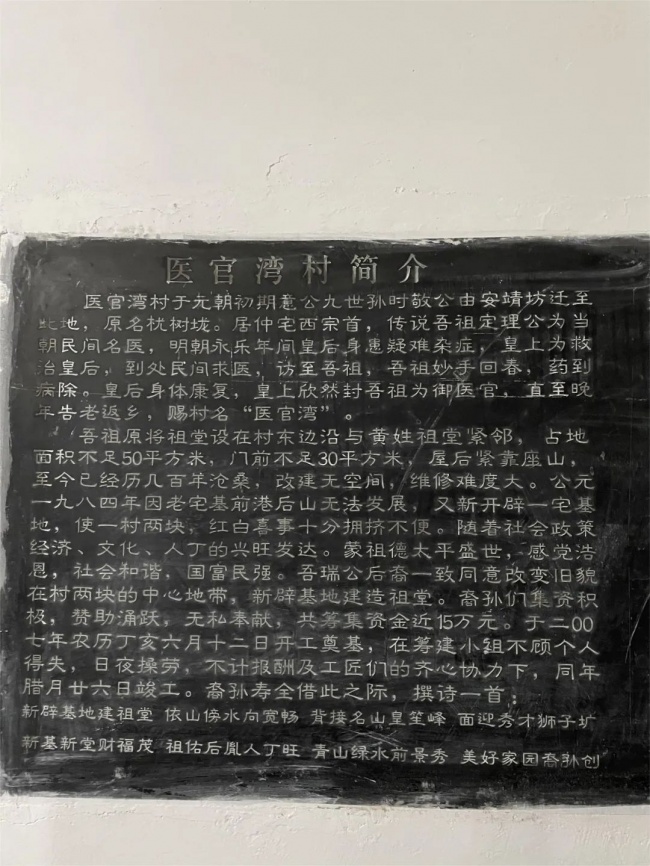 医官湾村简介
医官湾村于元朝初期意公九世孙时敬公由安靖坊迁至
此地，原名枕树垅。居仲宅西宗首，传说吾祖定理公为当
朝民间名医，明朝永乐年间皇后身患疑难杂症，皇上为救
治皇后，到处民间求医，访至吾祖，吾祖妙手回春，药到
病除。皇后身体康复，皇上欣然封吾祖为御医官，直至晚
年告老返乡，赐村名“医官湾”。
吾祖原将祖堂设在村东边沿与黄姓祖堂紧邻，占地
面积不足50平方米，门前不足30平方米，屋后紧靠座山，
至今已经历几百年沧桑，改建无空间，维修难度大。公元
一九八四年因老宅基前港后山无法发展，又新开辟一宅基
地，使一村两块，红白喜事十分拥挤不便。随着社会政策
经济、文化、人丁的兴旺发达。蒙祖德太平盛世，感党浩
恩，社会和谐，国富民强。吾瑞公后裔一致同意改变旧貌
在村两块的中心地带，新辟基地建造祖堂。裔孙们集资积
极，赞助涌跃，无私奉献，共筹集资金近15万元。于二00
七年农历丁亥六月十二日开工奠基，在筹建小组不顾个人
得失，日夜操劳，不计报酬及工匠们的齐心协力下，同年
腊月廿六日竣工。裔孙寿全借此之际，撰诗一首：
新辟基地建祖堂 依山傍水向宽畅 背接名山皇笙峰 面迎秀才狮子圹
新基新堂财福茂 祖佑后胤人丁旺 青山绿水前景秀 美好家园裔孙创